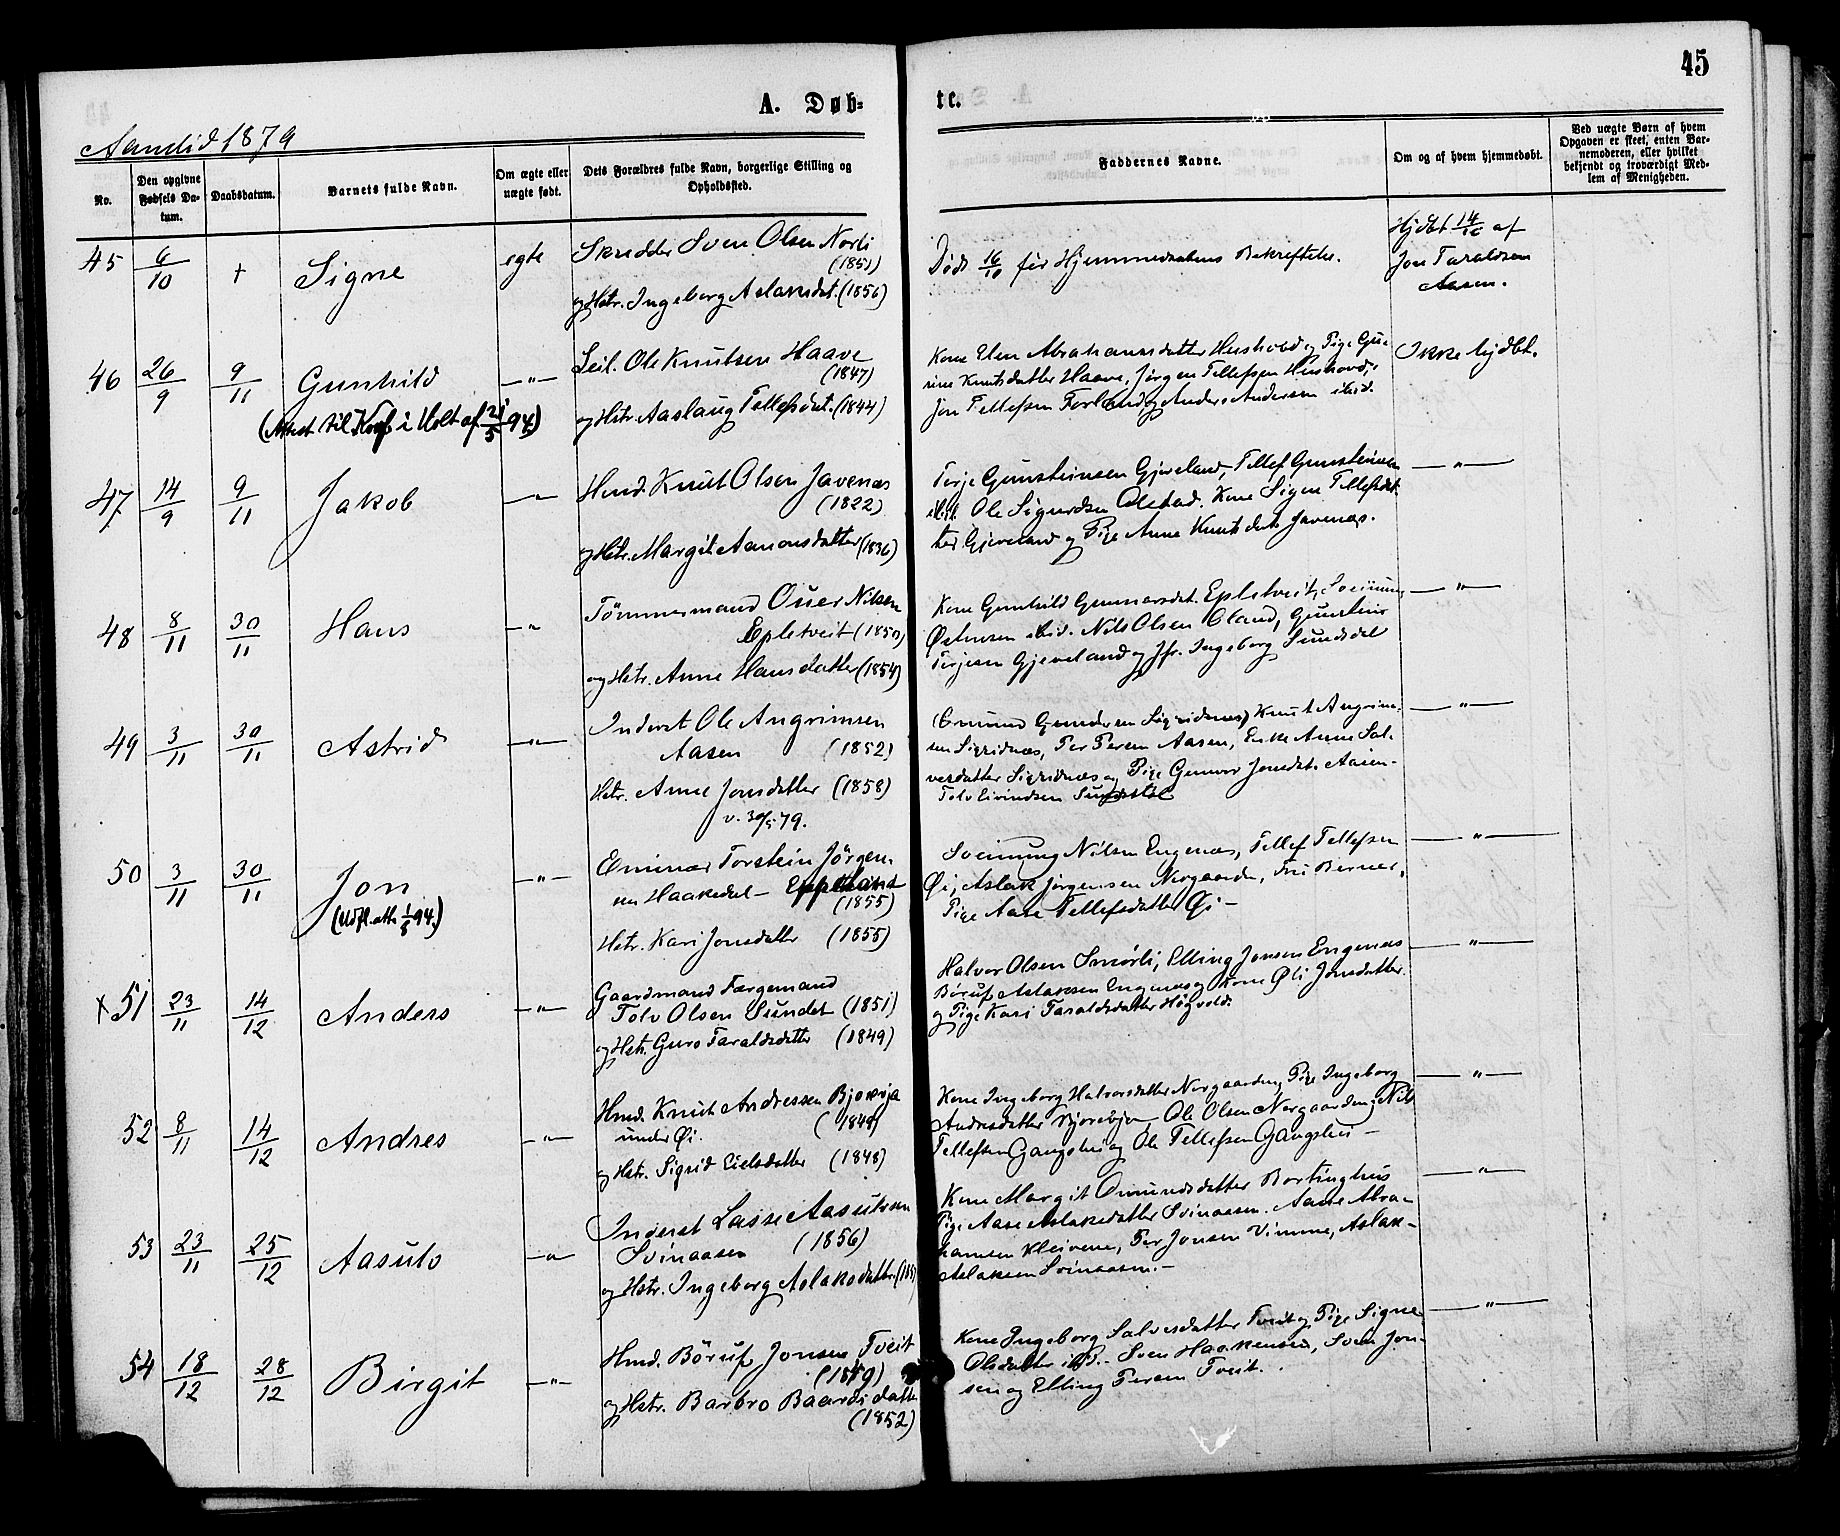 45
A. Døb-
te.
Aamlid 1879
No.
Den opgivne Fødsels Da-
tum.
Daabsdatum.
Barnets fulde Navn.
Om ægte eller
uægte født.
Dets Forældres fulde Navn, borgerlige Stilling og
Opholdssted.
Faddernes Navne.
Om og af hvem hjemmedøbt.
Ved uægte Børn af hvem
Opgaven er skeet, enten Bar-
nemoderen, eller hvilket
bekjendt og troværdigt Med-
lem af Menigheden.
45 6/10 + Signe egte
Skredder Sven Olsen Norli
(1851)
og Hstr. Ingeborg Aslaksdat. (1856)
Døde 16/10 før Hjemmedaabens Bekræftelse.
Hjdbt 14/10 af
Jon Taraldsen
Aasen.
46 26/9 9/11 Gunhild —"—
(Attest til Konf i Holt af 21/5 94)
Leil. Ole Knutsen Haave
(1847)
og Hstr. Aaslaug Tellefsdat. (1844)
Kone Elen Abrahamsdatter Hushovd og Pige Gu-
rine Knutsdatter Haave, Jørgen Tellefsen Hushovd,
Jon Tellefsen og Anders Andersen ibid.
Ikke hjdbt.
47 14/9 9/11 Jakob —"—
Hmd. Knut Olsen Javenæs
(1822)
og Hstr. Margit Aanonsdatter (1836)
Terje Gunsteinsen Gjeveland, Tellef Gunsteinsen
ibid. Ole Sigurdsen Kone Signe Tellefsdat-
ter Gjeveland og Pige Anne Knutsdat. Javenæs.
—"—
48 8/11 30/11 Hans —"—
Tømmermand Ouer Nilsen
Epletveit (1850)
og Hstr. Anne Hansdatter (1854)
Kone Gunhild Gunnarsdat. Epletveit, Sveinung
Østensen ibid. Nils Olsen Oland, Gunstein
Terjesen Gjeveland og Jfr. Ingeborg Sundsdal
—"—
49 3/11 30/11 Astrid —"—
Inderst Ole Angrimsen
Aasen (1852)
Hstr. Anne Jonsdatter (1858)
v. 30/5 79.
Omund Gundersen Sigridnæs, Knut Angrim-
sen Sigridnæs, Per Persen Aasen, Enke Anne Sal-
vesdatter Sigridnæs og Pige Gunvor Jonsdat. Aasen-
Tolv Eivindsen Sundsdal
—"—
50 3/11 30/11 Jon —"—
(Udfl. att. 1/8 94.)
Torstein Jørgen-
sen Haakedal —
(1855)
Hstr. Kari Jonsdatter (1855)
Sveinung Nilsen Engenæs, Tellef Tellefsen
Øi, Aslak Jørgensen Norgaarden, Fru Berner,
Pige Aase Tellefsdatter Øi —
—"—
x 51 23/11 14/12 Anders —"—
Gaardmand Færgemand
Tolv Olsen Sundet (1851)
og Hstr. Guro Taraldsdatter (1849)
Halvor Olsen Smørli, Elling Jonsen Engenæs
Børuf Aslaksen Engenæs og Kone Øli Jonsdatter
og Pige Kari Taraldsdatter Høgvold.
—"—
52 8/11 14/12 Andres —"—
Hmd. Knut Andressen Bjorøja
under Øi. (1848)
og Hstr. Sigrid Eielsdatter (1848)
Kone Ingeborg Halvorsdatter Norgaarden, Pige Ingeborg
Andresdatter Ole Olsen Norgaarden, Nils
Tellefsen Gangshei og Ole Tellefsen Gangshei —
—"—
53 23/11 25/12 Aasulv —"—
Inderst Lasse Aasulvsen
Svinaasen (1856)
og Hstr. Ingeborg Aslaksdatter
Kone Margit Omundsdatter Bortinghus
Pige Aase Aslaksdatter Svinaasen. Aasne Abra-
hamsen Kleivene, Per Jonsen Vimme, Aslak
Aslaksen Svinaasen. —
—"—
54 18/12 28/12 Birgit —"—
Hmd. Børuf Jonsen Tveit
(1849)
og Hstr. Barbro Baardsdatte
(1852)
Kone Ingeborg Salvesdatter Tveit og Pige Signe
Olsdatter ibid. Sven Haakensen, Sven Jon-
sen og Elling Persen Tveit.
—"—